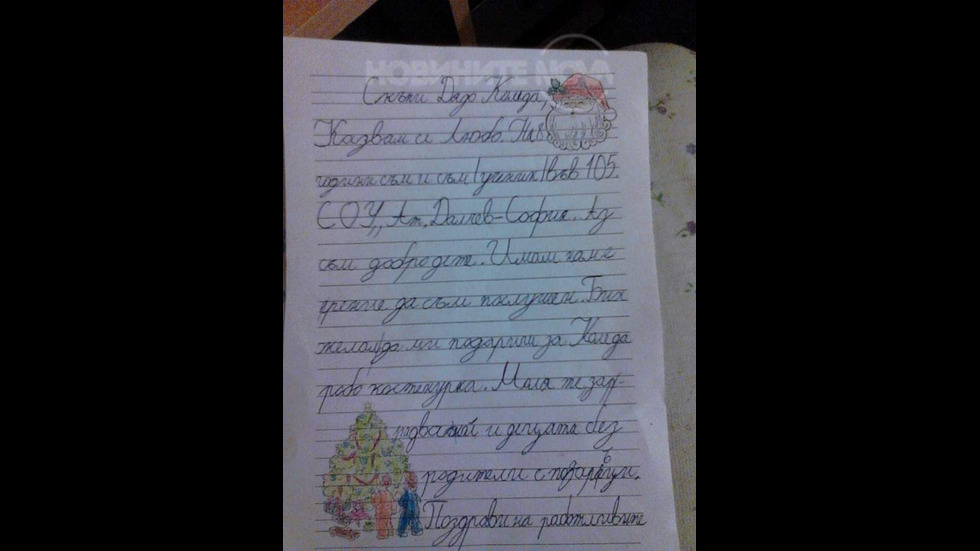 НОВИНИТЕ NOVA
Скъпи Дядо Коледа,
Казвам се Любо. На 8
години съм и съм ученик във 105.
СОУ „Ат. Далчев-София. Аз
съм добро дете. Имам
да съм послушен. Бих
желал да ми подариш за Коледа
робо костенурка. Моля те, зар-
радвай и децата без
родители с
Поздрави на работливите